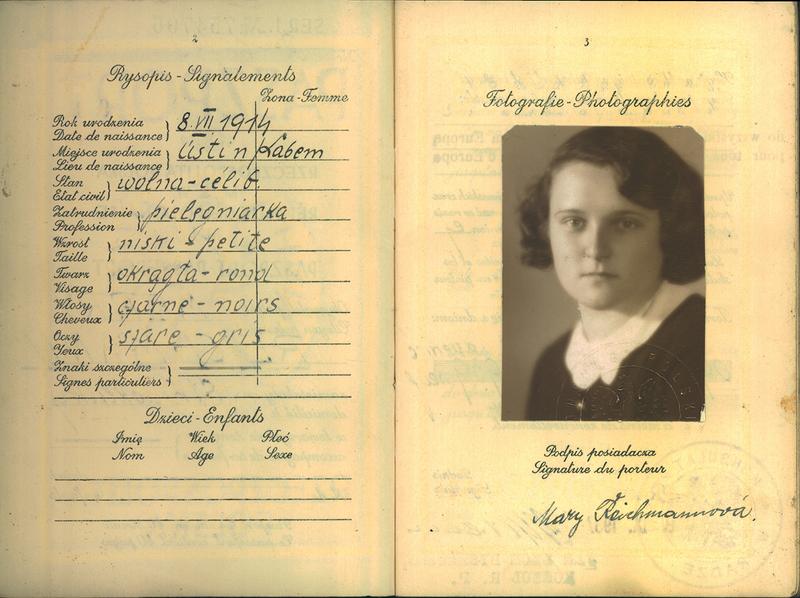 2
Rysopis - Signalements
Żona - Femme
Rok urodzenia
Date de naissance
8.VII 1914
Miejsce urodzenia
Lieu de naissance
Usti n/Labem
Stan
Etat civil
wolna - celib.
Zatrudnienie
Profession
pielęgniarka
Wzrost
Taille
niski - petite
Twarz
Visage
okrągła - rond
Włosy
Cheveux
czarne - noirs
Oczy
Yeux
szare - gris
Znaki szczególne
Signes particuliers
Dzieci - Enfants
Imię Wiek Płeć
Nom Age Sexe
3
Fotografie - Photographies
Podpis posiadacza
Signature du porteur
Mary Reichmannová.